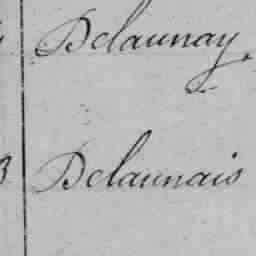 Delaunay,
3 Delaunais